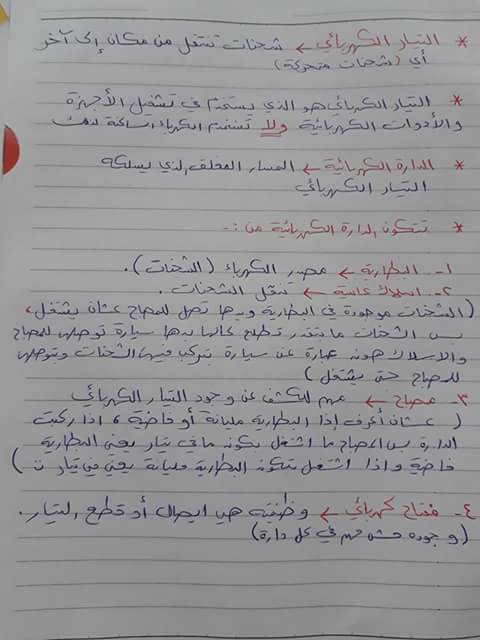 * التيار الكهربائي ← شحنات تنتقل من مكان إلى آخر
أي (شحنات متحركة)
* التيار الكهربائي هو الذي يستخدم في تشغيل الأجهزة
والأدوات الكهربائية ولا تستخدم الكهرباء الساكنة لذلك
* الدارة الكهربائية ← المسار المغلق الذي يسلكه
التيار الكهربائي
* تتكون الدارة الكهربائية من :-
١- البطارية ← مصدر الكهرباء (الشحنات).
٢- اسلاك نحاسية ← تنقل الشحنات.
(الشحنات موجودة في البطارية وبدها تصل للمصباح عشان يشتغل،
بس الشحنات ما بتقدر تطلع لحالها بدها سيارة توصلها للمصباح
والاسلاك هون عبارة عن سيارة بتركب فيها الشحنات وبتوصلها
للمصباح حتى يشتغل)
٣- مصباح ← مهم للكشف عن وجود التيار الكهربائي
(عشان أعرف إذا البطارية مليانة أو فاضية، اذا ركبت
الدارة بس المصباح ما اشتغل بكون ما في تيار يعني البطارية
فاضية واذا اشتغل بتكون البطارية مليانة يعني في تيار)
٤- مفتاح كهربائي ← وظيفته هي ايصال أو قطع التيار.
(وجوده مش مهم في كل دارة)